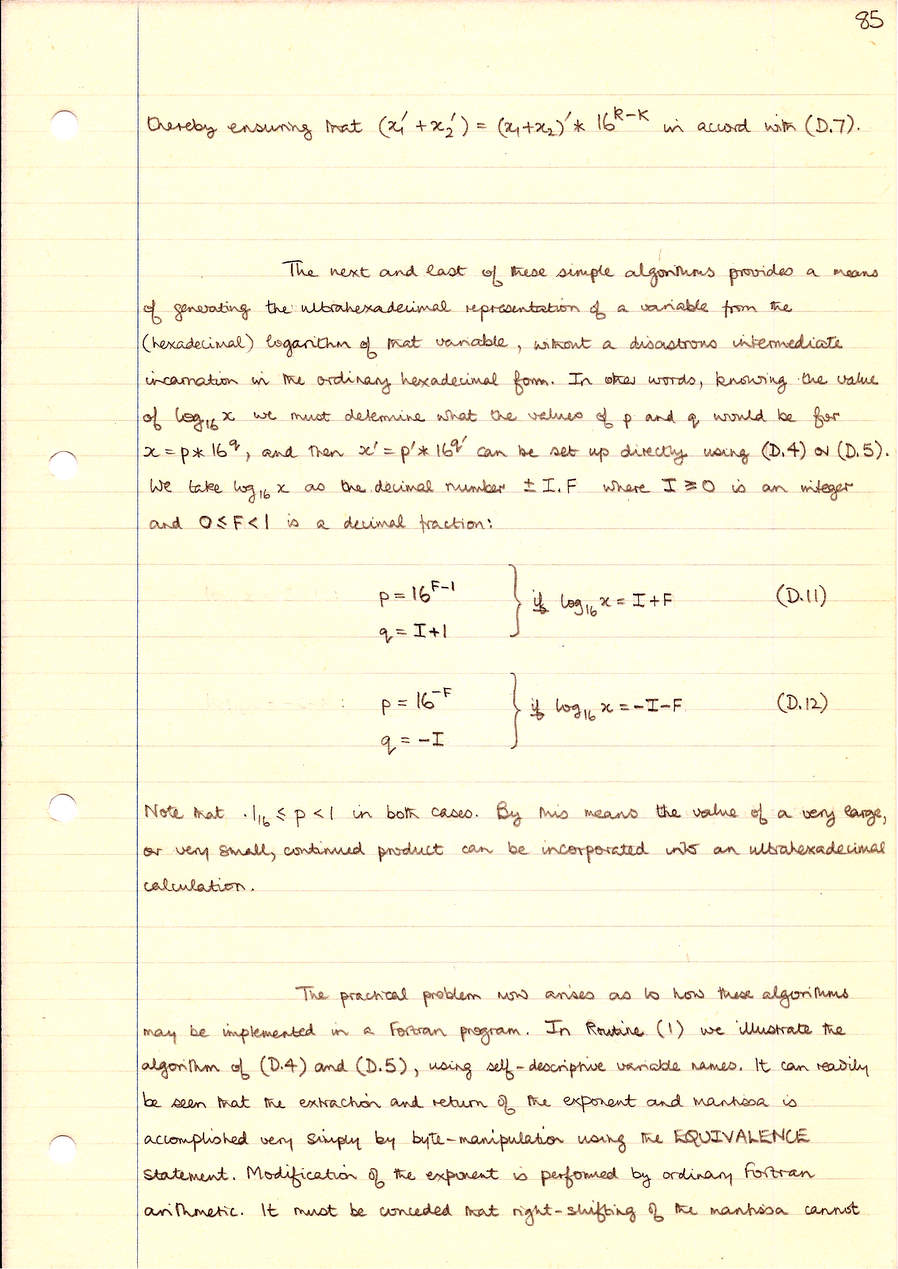 85
thereby ensuring that (x₁′ + x₂′) = (x₁+x₂)′ * 16^{k-K} in accord with (D.7).
The next and last of these simple algorithms provides a means
of generating the ultrahexadecimal representation of a variable from the
(hexadecimal) logarithm of that variable, without a disastrous intermediate
incarnation in the ordinary hexadecimal form. In other words, knowing the value
of log₁₆ x we must determine what the values of p and q would be for
x = p * 16^q, and then x′ = p′ * 16^{q′} can be set up directly using (D.4) or (D.5).
We take log₁₆ x as the decimal number ± I.F where I ≥ 0 is an integer
and 0 ≤ F < 1 is a decimal fraction:
p = 16^{F-1}
q = I+1
} if log₁₆ x = I+F (D.11)
p = 16^{-F}
q = -I
} if log₁₆ x = -I-F (D.12)
Note that ·1₁₆ ≤ p < 1 in both cases. By this means the value of a very large,
or very small, continued product can be incorporated into an ultrahexadecimal
calculation.
The practical problem now arises as to how these algorithms
may be implemented in a Fortran program. In Routine (1) we illustrate the
algorithm of (D.4) and (D.5), using self-descriptive variable names. It can readily
be seen that the extraction and return of the exponent and mantissa is
accomplished very simply by byte-manipulation using the EQUIVALENCE
statement. Modification of the exponent is performed by ordinary Fortran
arithmetic. It must be conceded that right-shifting of the mantissa cannot